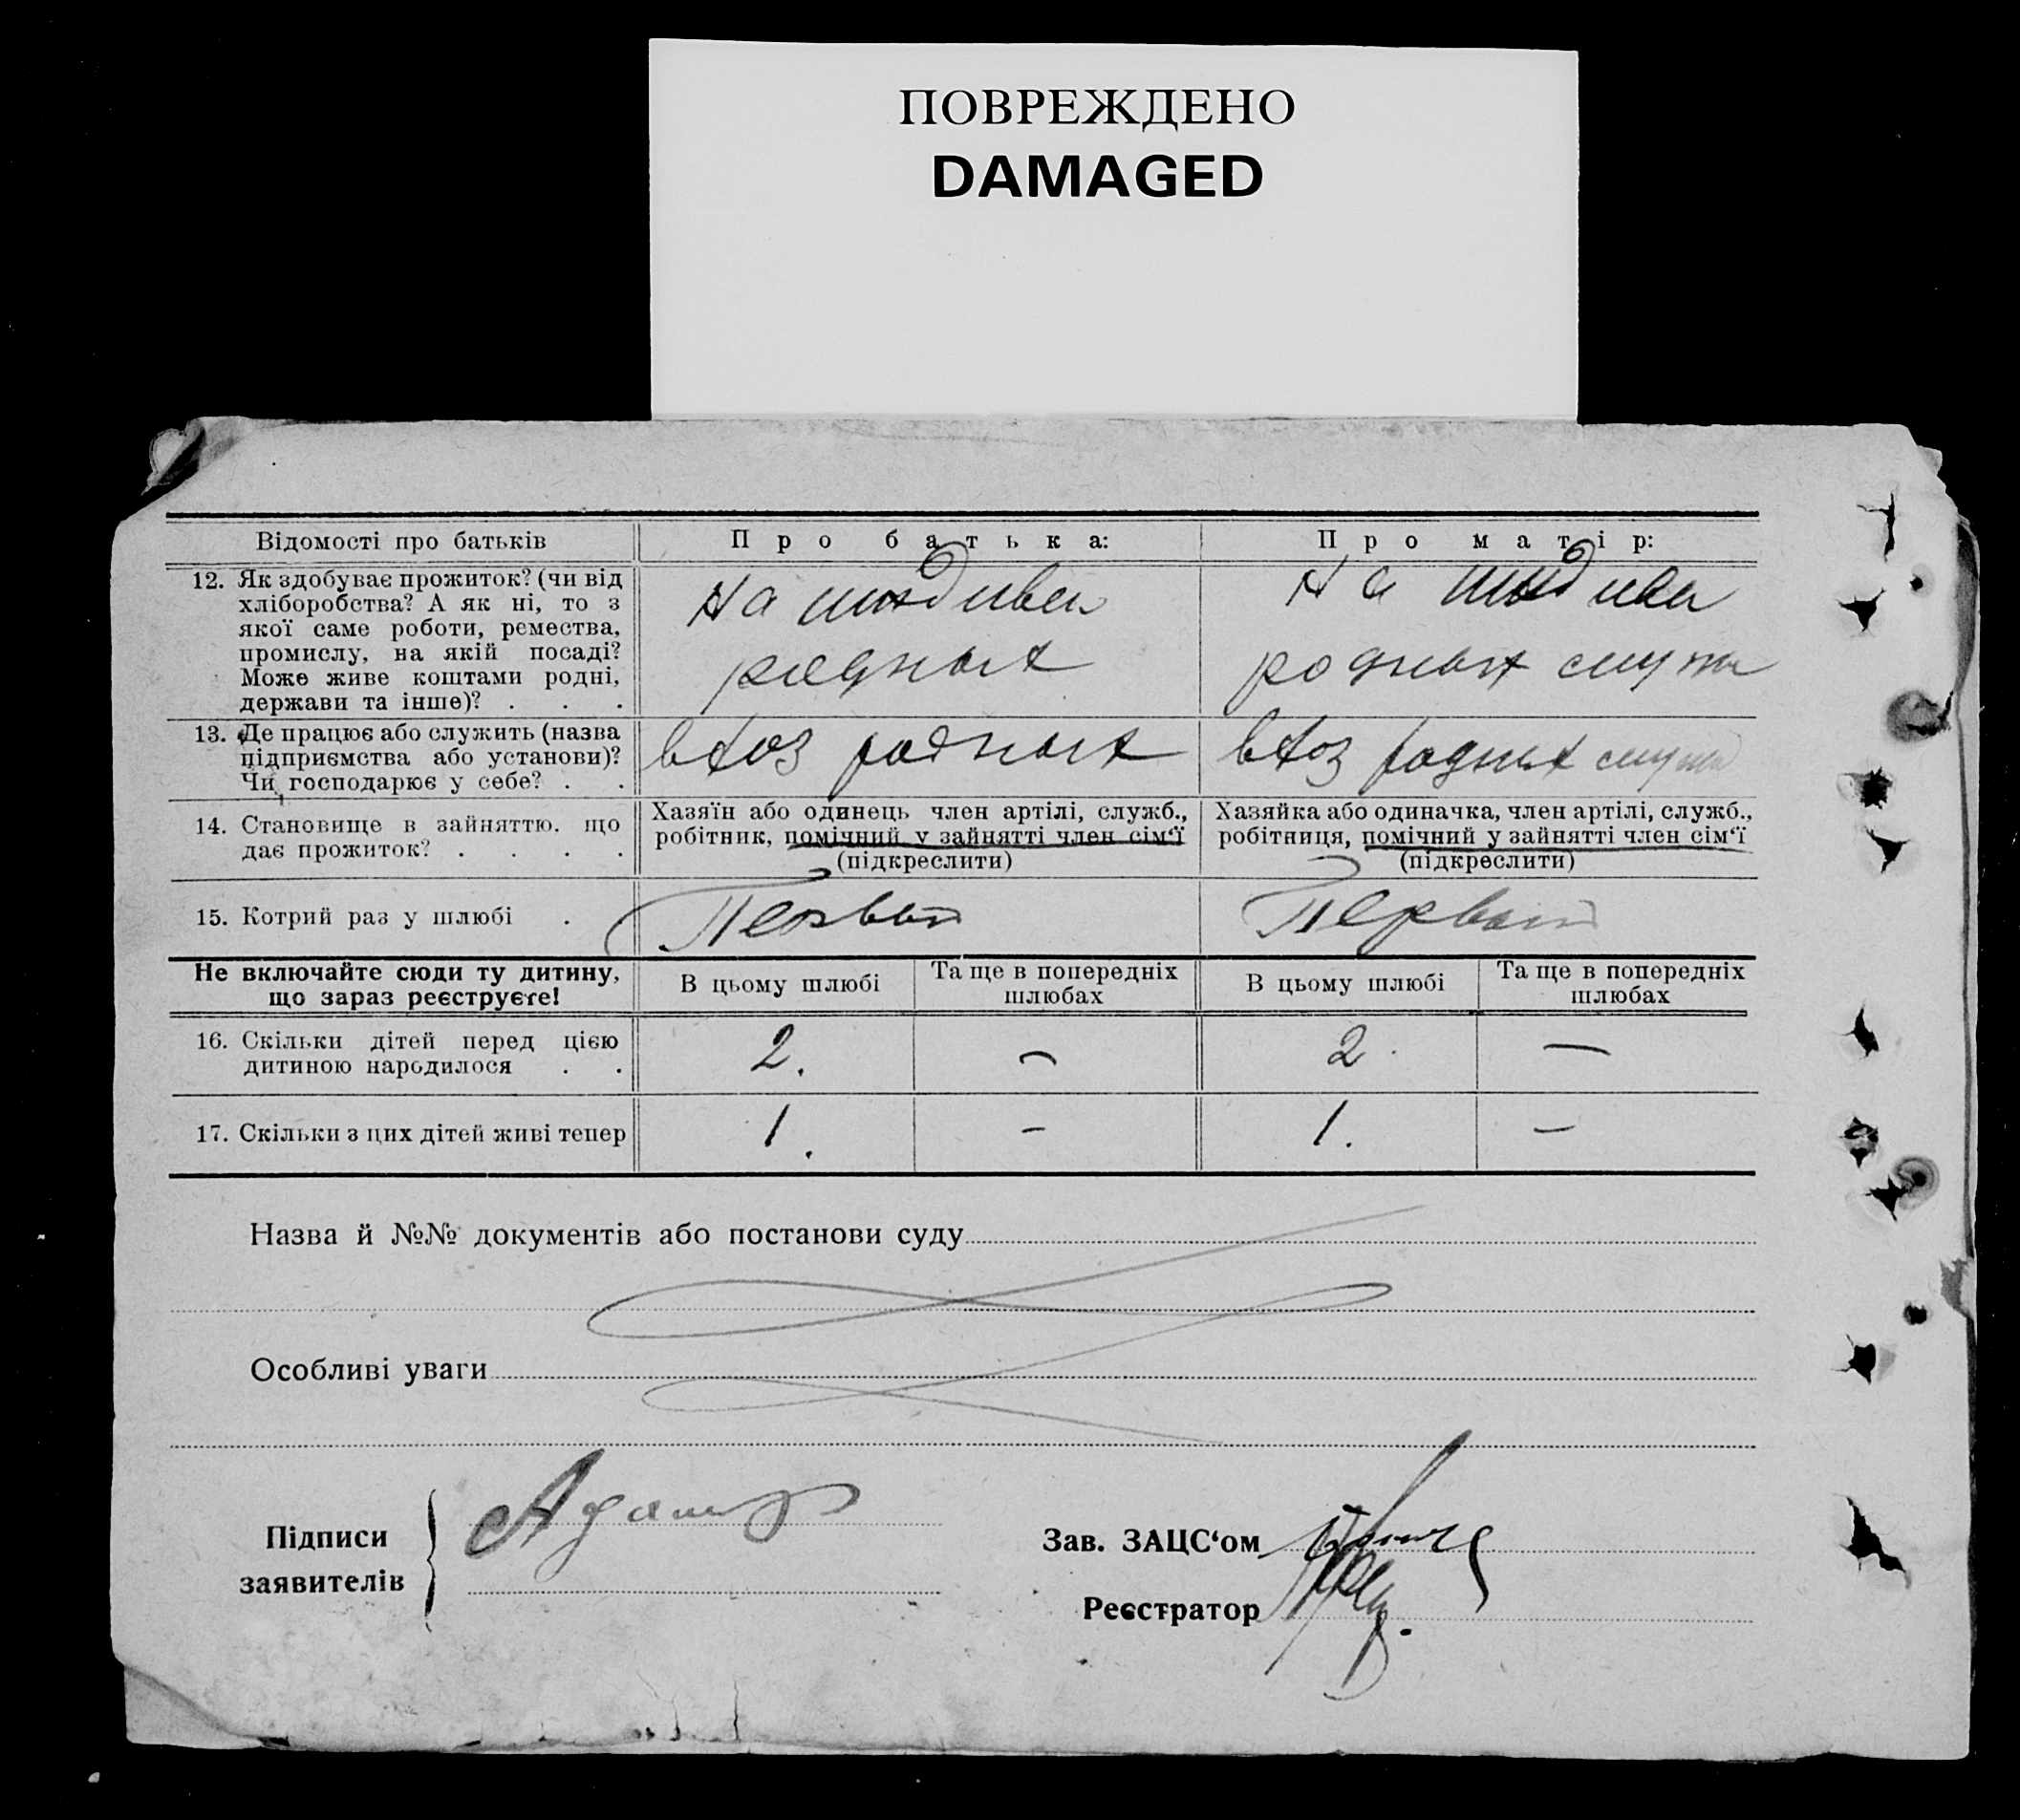 ПОВРЕЖДЕНО
DAMAGED
Відомості про батьків
Про батька:
Про матір:
12. Як здобуває прожиток? (чи від
хліборобства? А як ні, то з
якої саме роботи, ремества,
промислу, на якій посаді?
Може живе коштами родні,
держави та інше)? . . .
На иждивен
родных
На иждивен
родных мужа
13. Де працює або служить (назва
підприємства або установи)?
Чи господарює у себе? . .
в хоз родных
в хоз родных мужа
14. Становище в зайняттю, що
дає прожиток? . . . .
Хазяїн або одинець член артілі, служб.,
робітник, помічний у зайнятті член сім‘ї
(підкреслити)
Хазяйка або одиначка, член артілі, служб.,
робітниця, помічний у зайнятті член сім‘ї
(підкреслити)
15. Котрий раз у шлюбі .
Первый
Первый
Не включайте сюди ту дитину,
що зараз реєструєте!
В цьому шлюбі
Та ще в попередніх
шлюбах
В цьому шлюбі
Та ще в попередніх
шлюбах
16. Скільки дітей перед цією
дитиною народилося . .
2.
—
2.
—
17. Скільки з цих дітей живі тепер
1.
-
1.
—
Назва й №№ документів або постанови суду
Особливі уваги
Підписи
заявителів
Зав. ЗАЦС‘ом
Реєстратор